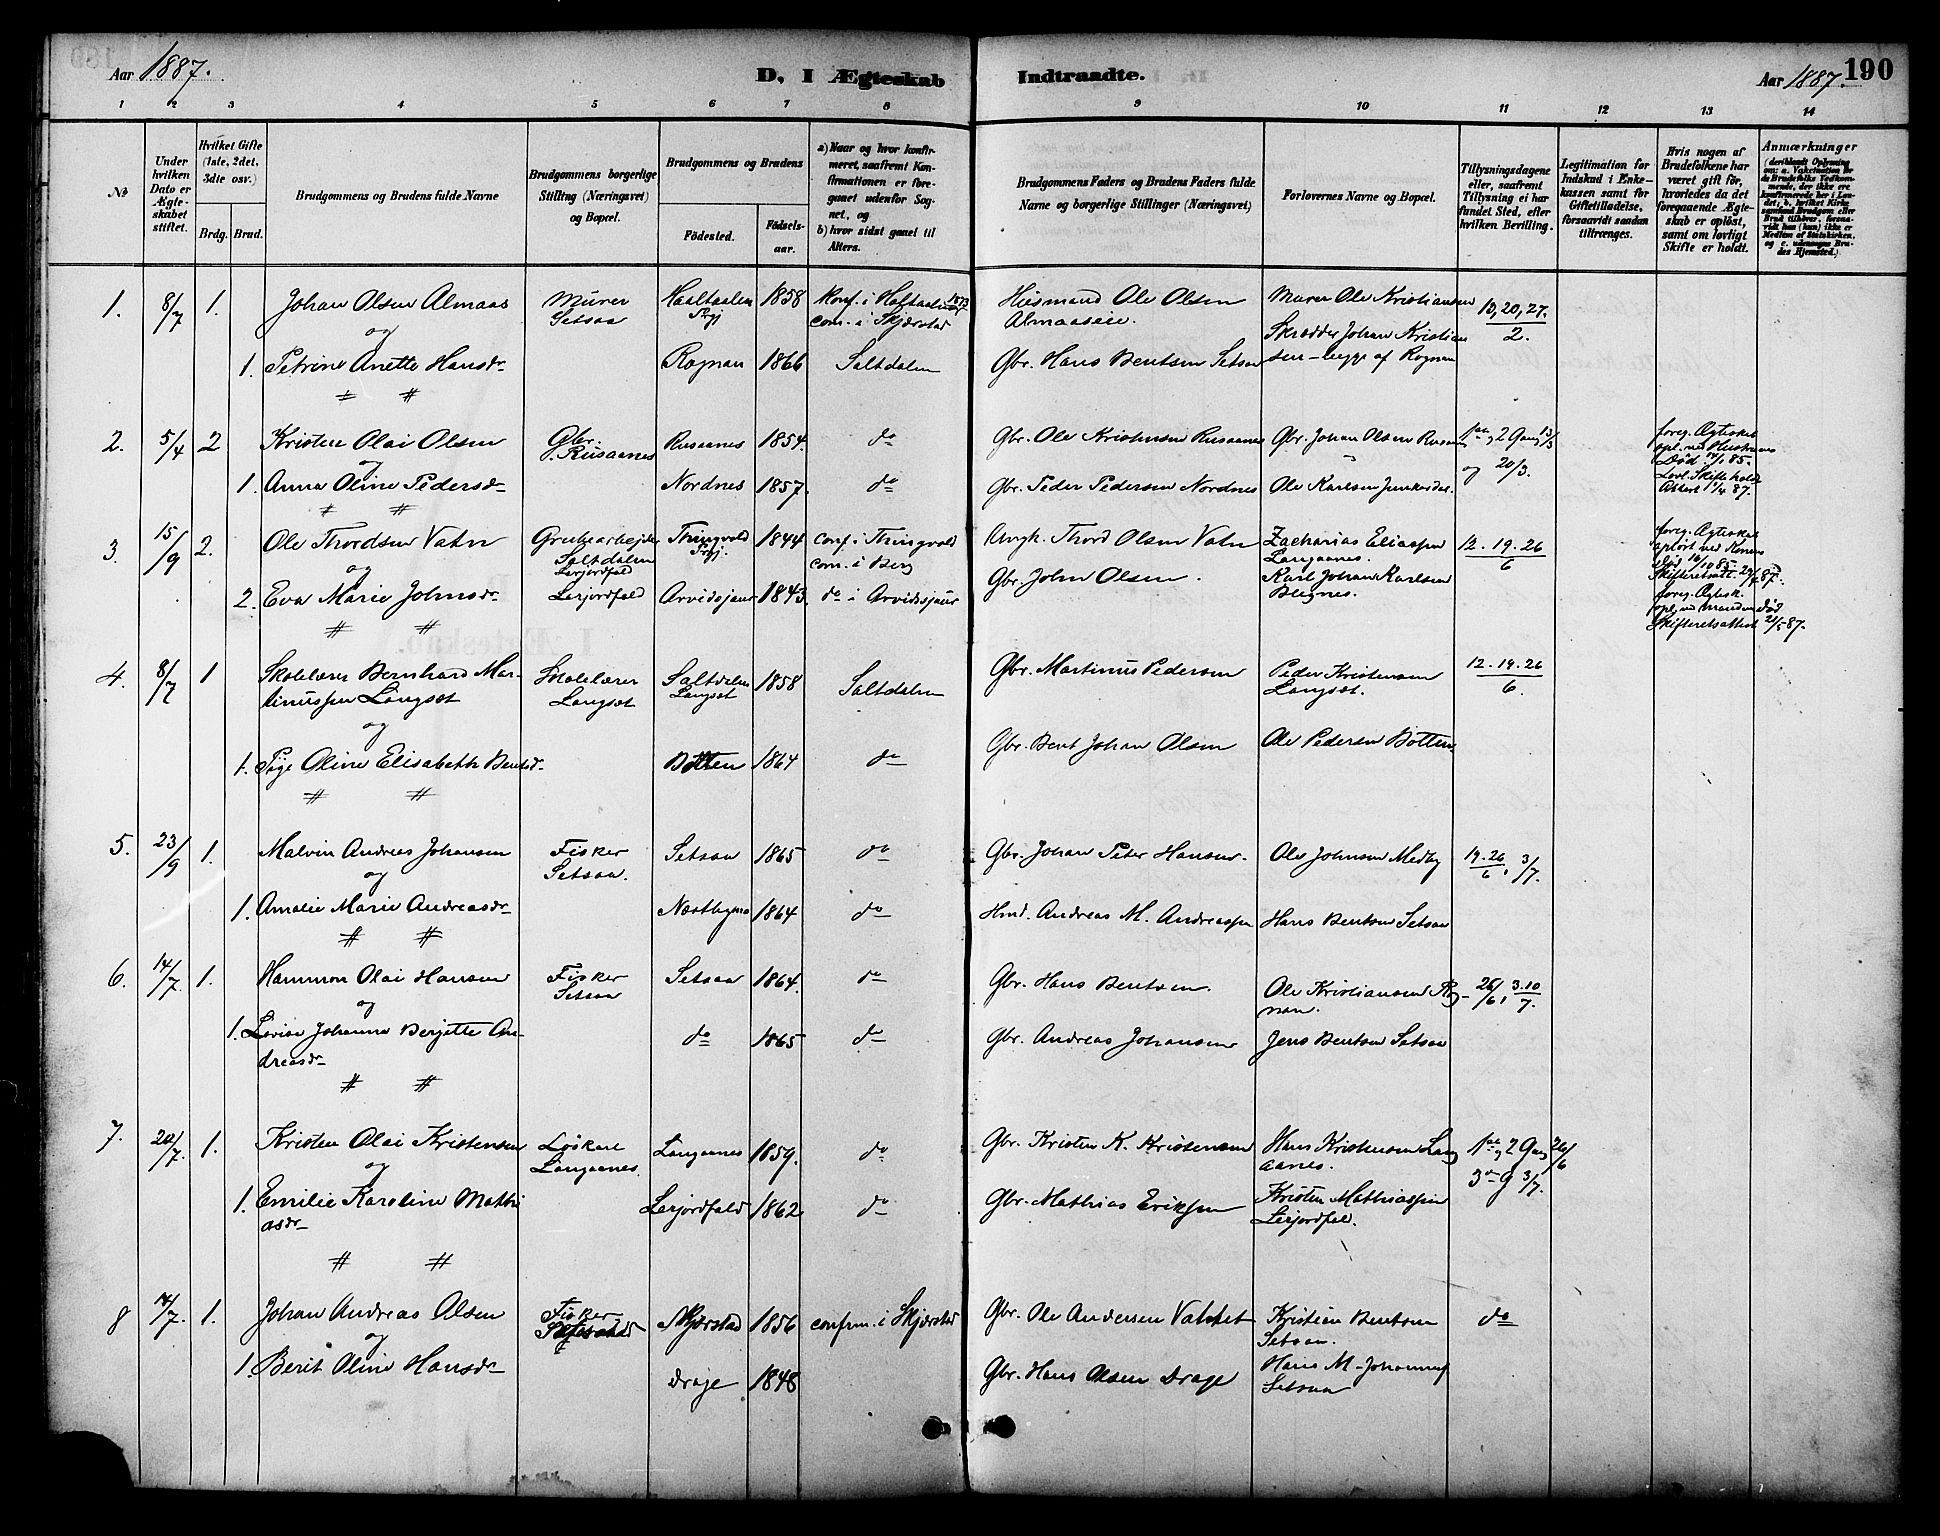 Aar 1887.
D, I Ægteskab Indtraadte.
Aar 1887. 190
1 2 3 4 5 6 7 8 9 10 11 12 13 14
No
Under hvilken Dato er Ægteskabet stiftet.
Hvilket Gifte (1ste, 2det, 3die osv.)
Brdg. Brud.
Brudgommens og Brudens fulde Navne
Brudgommens borgerlige Stilling (Næringsvei) og Bopæl.
Brudgommens og Brudens
Fødested. Fødselsaar.
a) Naar og hvor konfirmeret, saafremt Konfirmationen er foregaaet udenfor Sognet, og
b) hvor sidst gaaet til Alters.
Brudgommens Faders og Brudens Faders fulde Navne og borgerlige Stillinger (Næringsvei)
Forlovernes Navne og Bopæl.
Tillysningsdagene eller, saafremt Tillysning ei har fundet Sted, efter hvilken Bevilling.
Legitimation for Indskud i Enkekassen samt for Giftetilladelse, forsaavidt saadan tiltrænges.
Hvis nogen af Brudefolkene har været gift før, hvorledes da det foregaaende Ægteskab er opløst, samt om lovligt Skifte er holdt.
Anmærkninger
1. 8/7 1. Johan Olsen Almaas Murer Setsaa Haaltaalen Prgj 1858 Konf. i Holtaalen 1873 com. i Skjærstad Husmand Ole Olsen Almaaseie. Murer Ole Kristiansen Skrædder Johan Kristiansen - begge af Rognan 13, 20, 27. 2.
og
1. Petrine Anette Hansdr Rognan 1866 Saltdalen Gbr. Hans Bentsen Setsaa
2. 5/4 2 Kristen Olai Olsen Gbr. Rusaanes Rusaanes 1854. do Gbr. Ole Kristensen Rusaanes Gbr. Johan Olsen 1ste og 2 Gang 13/3 og 20/3. foreg. Ægteskab opl. ved Hustruens Død 85.
og
1. Anna Oline Pedersdr Nordnes 1857. do Gbr. Peder Pedersen Nordnes Ole Karlsen Junkerdal. Skifte holdt 87.
3. 15/9 2. Ole Thordsen Vatn Grubearbejder Saltdalen Lerjordfald Thingvold Prgj. 1844 conf. i Thingvold com. i Berg Thord Olsen Vatn Zacharias Eliassen Langaanes. 12. 19. 26 6 foreg. Ægteskab opløst ved Konens død 85. Skifteretsatt. 87.
og
2. Eva Marie Johnsdr Lerjordfald Arvidsjaur 1843. do i Arvidsjaur Gbr. John Olsen. Karl Johan Karlsen foreg. Ægtesk. opl. ved Mandens død Skifteretsattest 21/5 87.
4. 8/7 1 Skolelærer Bernhard Martinussen Langset Skolelærer Langset Saltdalen Langset 1858 Saltdalen Gbr. Martinus Pedersen Peder Kristensen Langset. 12. 19. 26 6.
og
1. Oline Elisabeth Bentsdr Botten 1864 do Gbr. Bent Johan Olsen Ole Pedersen Botten
5. 23/9 1. Malvin Andreas Johansen Fisker Setsaa. Setsaa 1865 do Gbr. Johan Peter Hansen. Ole Johnsen Medby 19. 26 6, 3/7.
og
1. Amalie Marie Andreasdr 1864 do Hmd. Andreas M. Andreassen Hans Bentsen Setsaa
6. 14/7. 1. Hammon Olai Hansen Fisker Setsaa Setsaa 1864. do Gbr. Hans Bentsen. Ole Kristiansen Rognan. 26/6, 3.10 7.
og
1. Lovise Johanna Berjette Andreasdr do 1865 do Gbr. Andreas Johansen Jens Bentsen Setsaa
7. 20/7. 1. Kristen Olai Kristensen Løskarl Langaanes. Langaanes 1859. do Gbr. Kristen K. Kristensen Hans Kristensen Langaanes. 1ste og 2 Gang 26/6 3de G 3/7.
og
1. Emilie Karoline Mathiasdr Lerjordfald 1862 do Gbr. Mathias Eriksen Kristen Mathiassen Lerjordfal.
8 14/7. 1. Johan Andreas Olsen Fisker Skjærstad 1856 confirm. i Skjærstad Gbr. Ole Andersen Vatnet Kristian Bentsen Setsaa. do
og
1. Berit Oline Hansdr Drage 1848 Gbr. Hans Olsen Drage Hans M. Johannes Setsaa